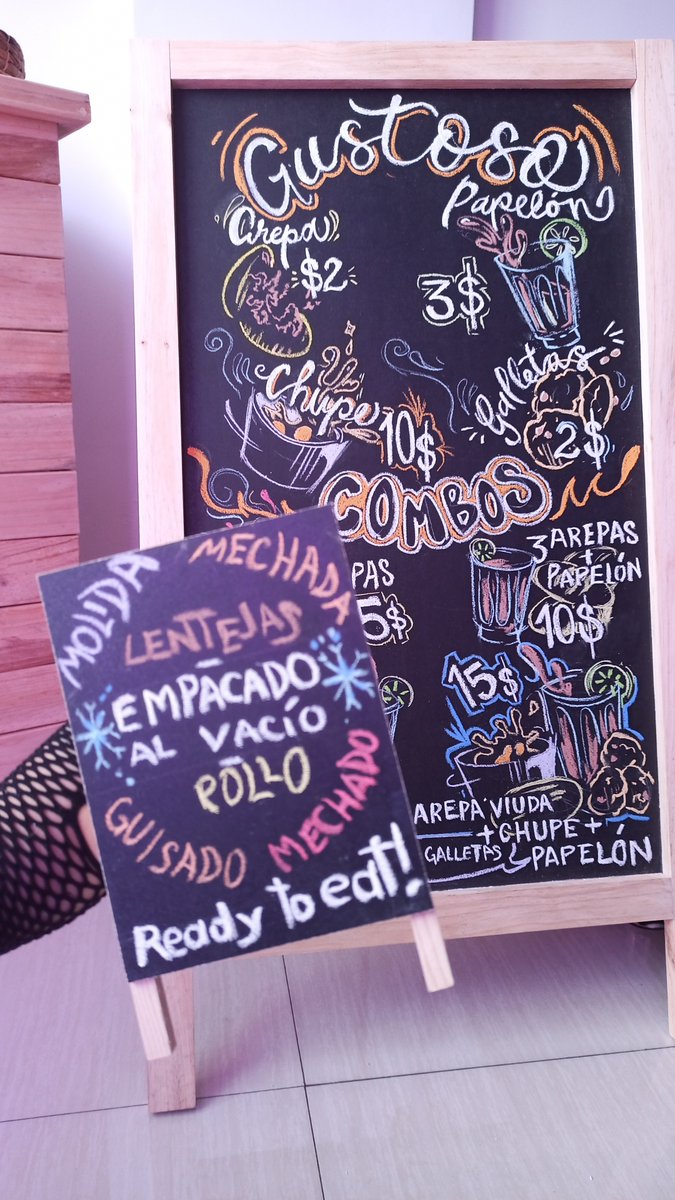 Gustosa
arepa
$2
Papelón
3$
Chupe
10$
Galletas
2$
COMBOS
PAS
5$
3 AREPAS
+
PAPELÓN
10$
15$
AREPA VIUDA
+ CHUPE +
GALLETAS PAPELÓN
MOLIDA
MECHADA
LENTEJAS
EMPACADO
AL VACÍO
POLLO
GUISADO
MECHADO
Ready to eat!